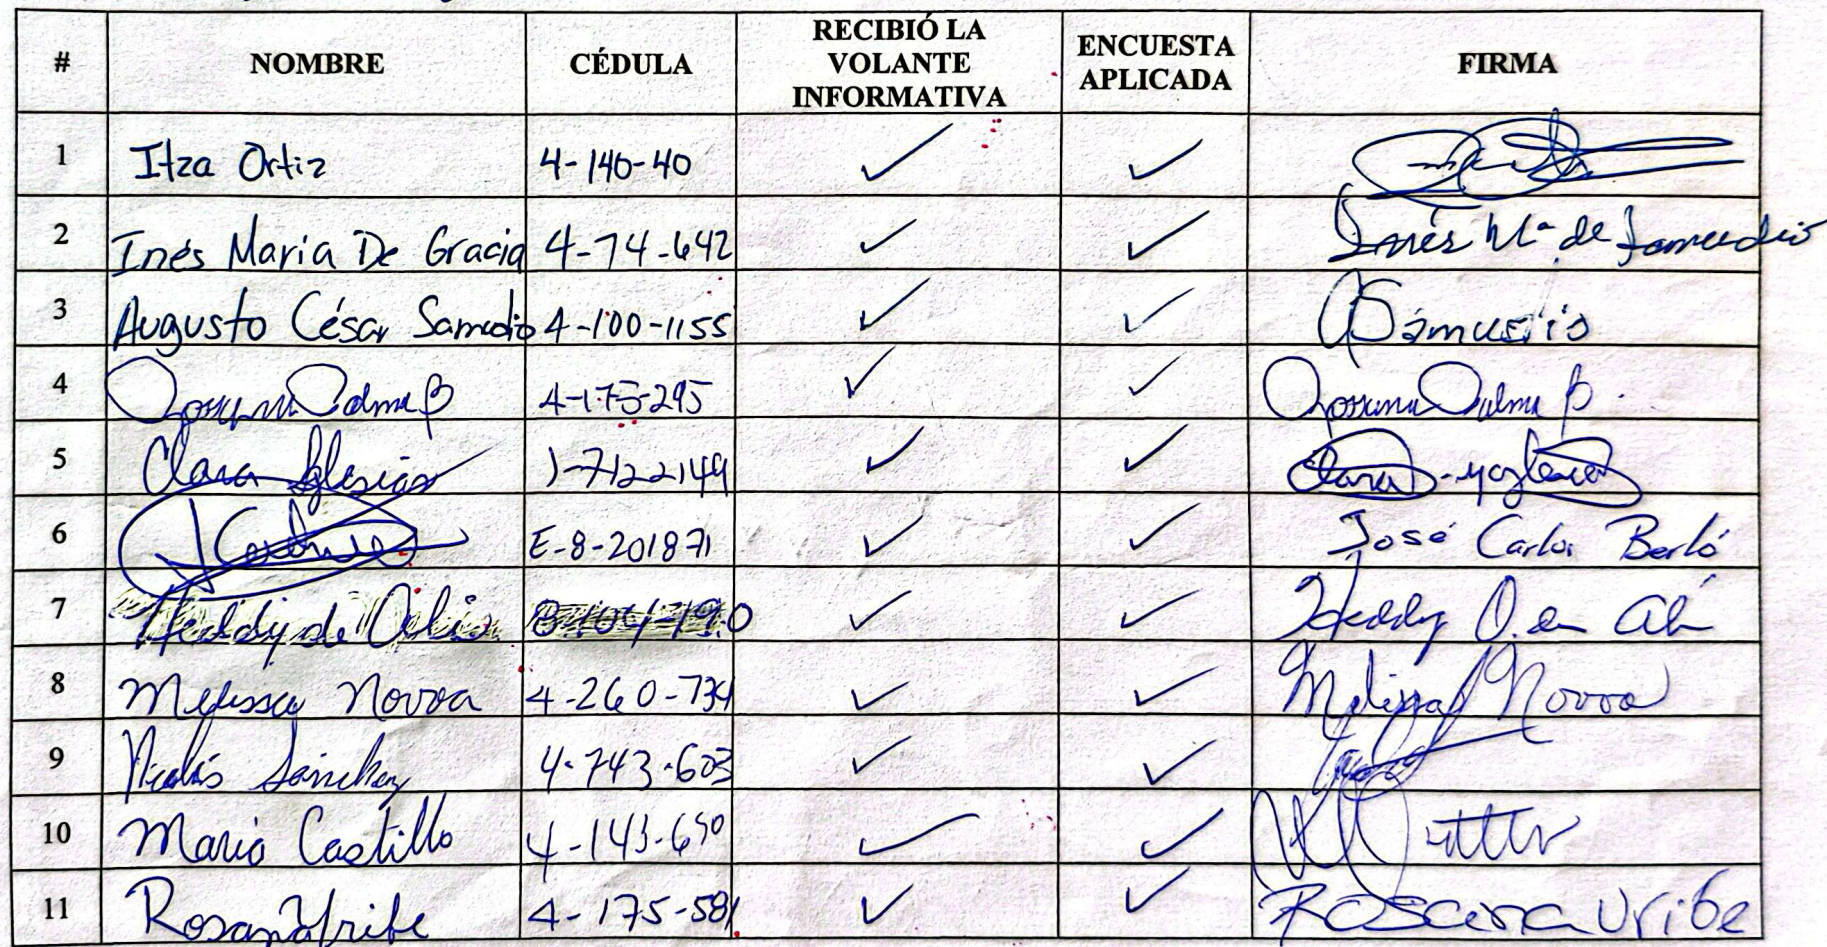 # NOMBRE CÉDULA RECIBIÓ LA VOLANTE INFORMATIVA ENCUESTA APLICADA FIRMA
1 Itza Ortiz 4-140-40 ✓ ✓
2 Inés María De Gracia 4-74-642 ✓ ✓ Inés Mª de Samudio
3 Augusto César Samudio 4-100-1155 ✓ ✓ Samudio
4 4-175-295 ✓ ✓
5 Clara Iglesias ✓ ✓ Clara
6 E-8-201871 ✓ ✓ José Carlos Berló
7 Heddy de ✓ ✓ Heddy
8 Melissa Novoa 4-260-734 ✓ ✓ Melissa Novoa
9 Nicolás Sánchez 4-743-603 ✓ ✓
10 Mario Castillo ✓ ✓
11 Rosana Uribe 4-175-581 ✓ ✓ Rosana Uribe